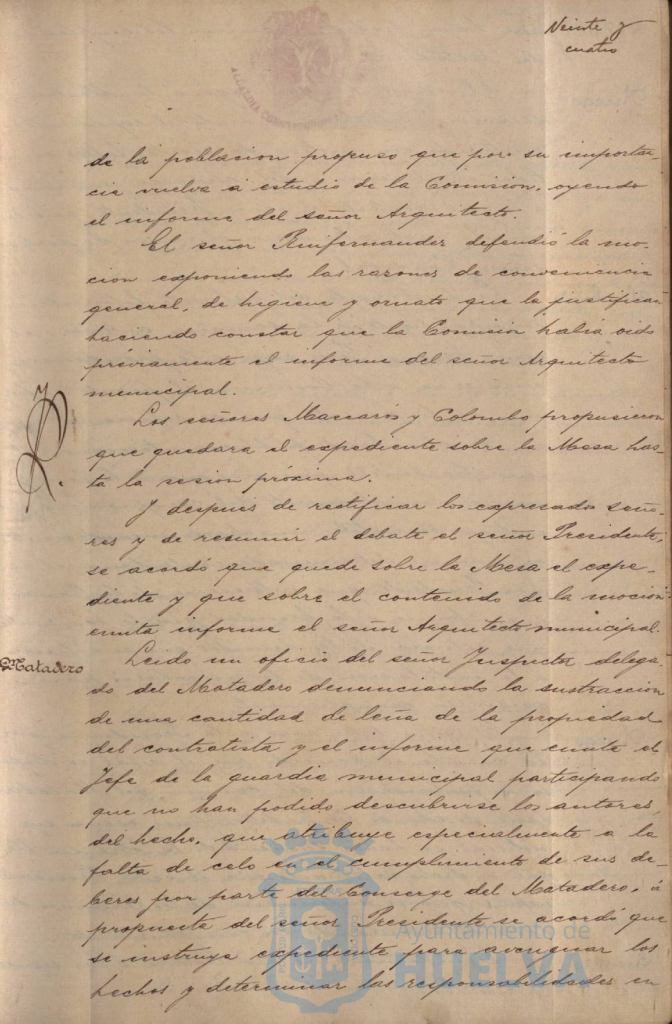 Veinte y
cuatro
de la poblacion propuso que por su importan-
cia vuelva á estudio de la Comisión, oyendo
el informe del señor Arquitecto.
El señor Ruifernandez defendió la mo-
cion exponiendo las razones de conveniencia
general, de higiene y ornato que la justifican
haciendo constar que la Comisión habia oido
préviamente el informe del señor Arquitecto
municipal.
Los señores Maccarós y Colombo propusieron
que quedara el expediente sobre la Mesa has-
ta la sesion próxima.
Y después de rectificar los expresados seño-
res y de resumir el debate el señor Presidente,
se acordó que quede sobre la Mesa el expe-
diente y que sobre el contenido de la mocion
emita informe el señor Arquitecto municipal.
Matadero
Leido un oficio del señor Inspector delega-
do del Matadero denunciando la sustraccion
de una cantidad de leña de la propiedad
del contratista y el informe que emite el
Jefe de la guardia municipal participando
que no han podido descubrirse los autores
del hecho, que atribuye especialmente a la
falta de celo en el cumplimiento de sus de-
beres por parte del Conserge del Matadero, á
propuesta del señor Presidente se acordó que
se instruya expediente para averiguar los
hechos y determinar las responsabilidades en
Ayuntamiento de
HUELVA